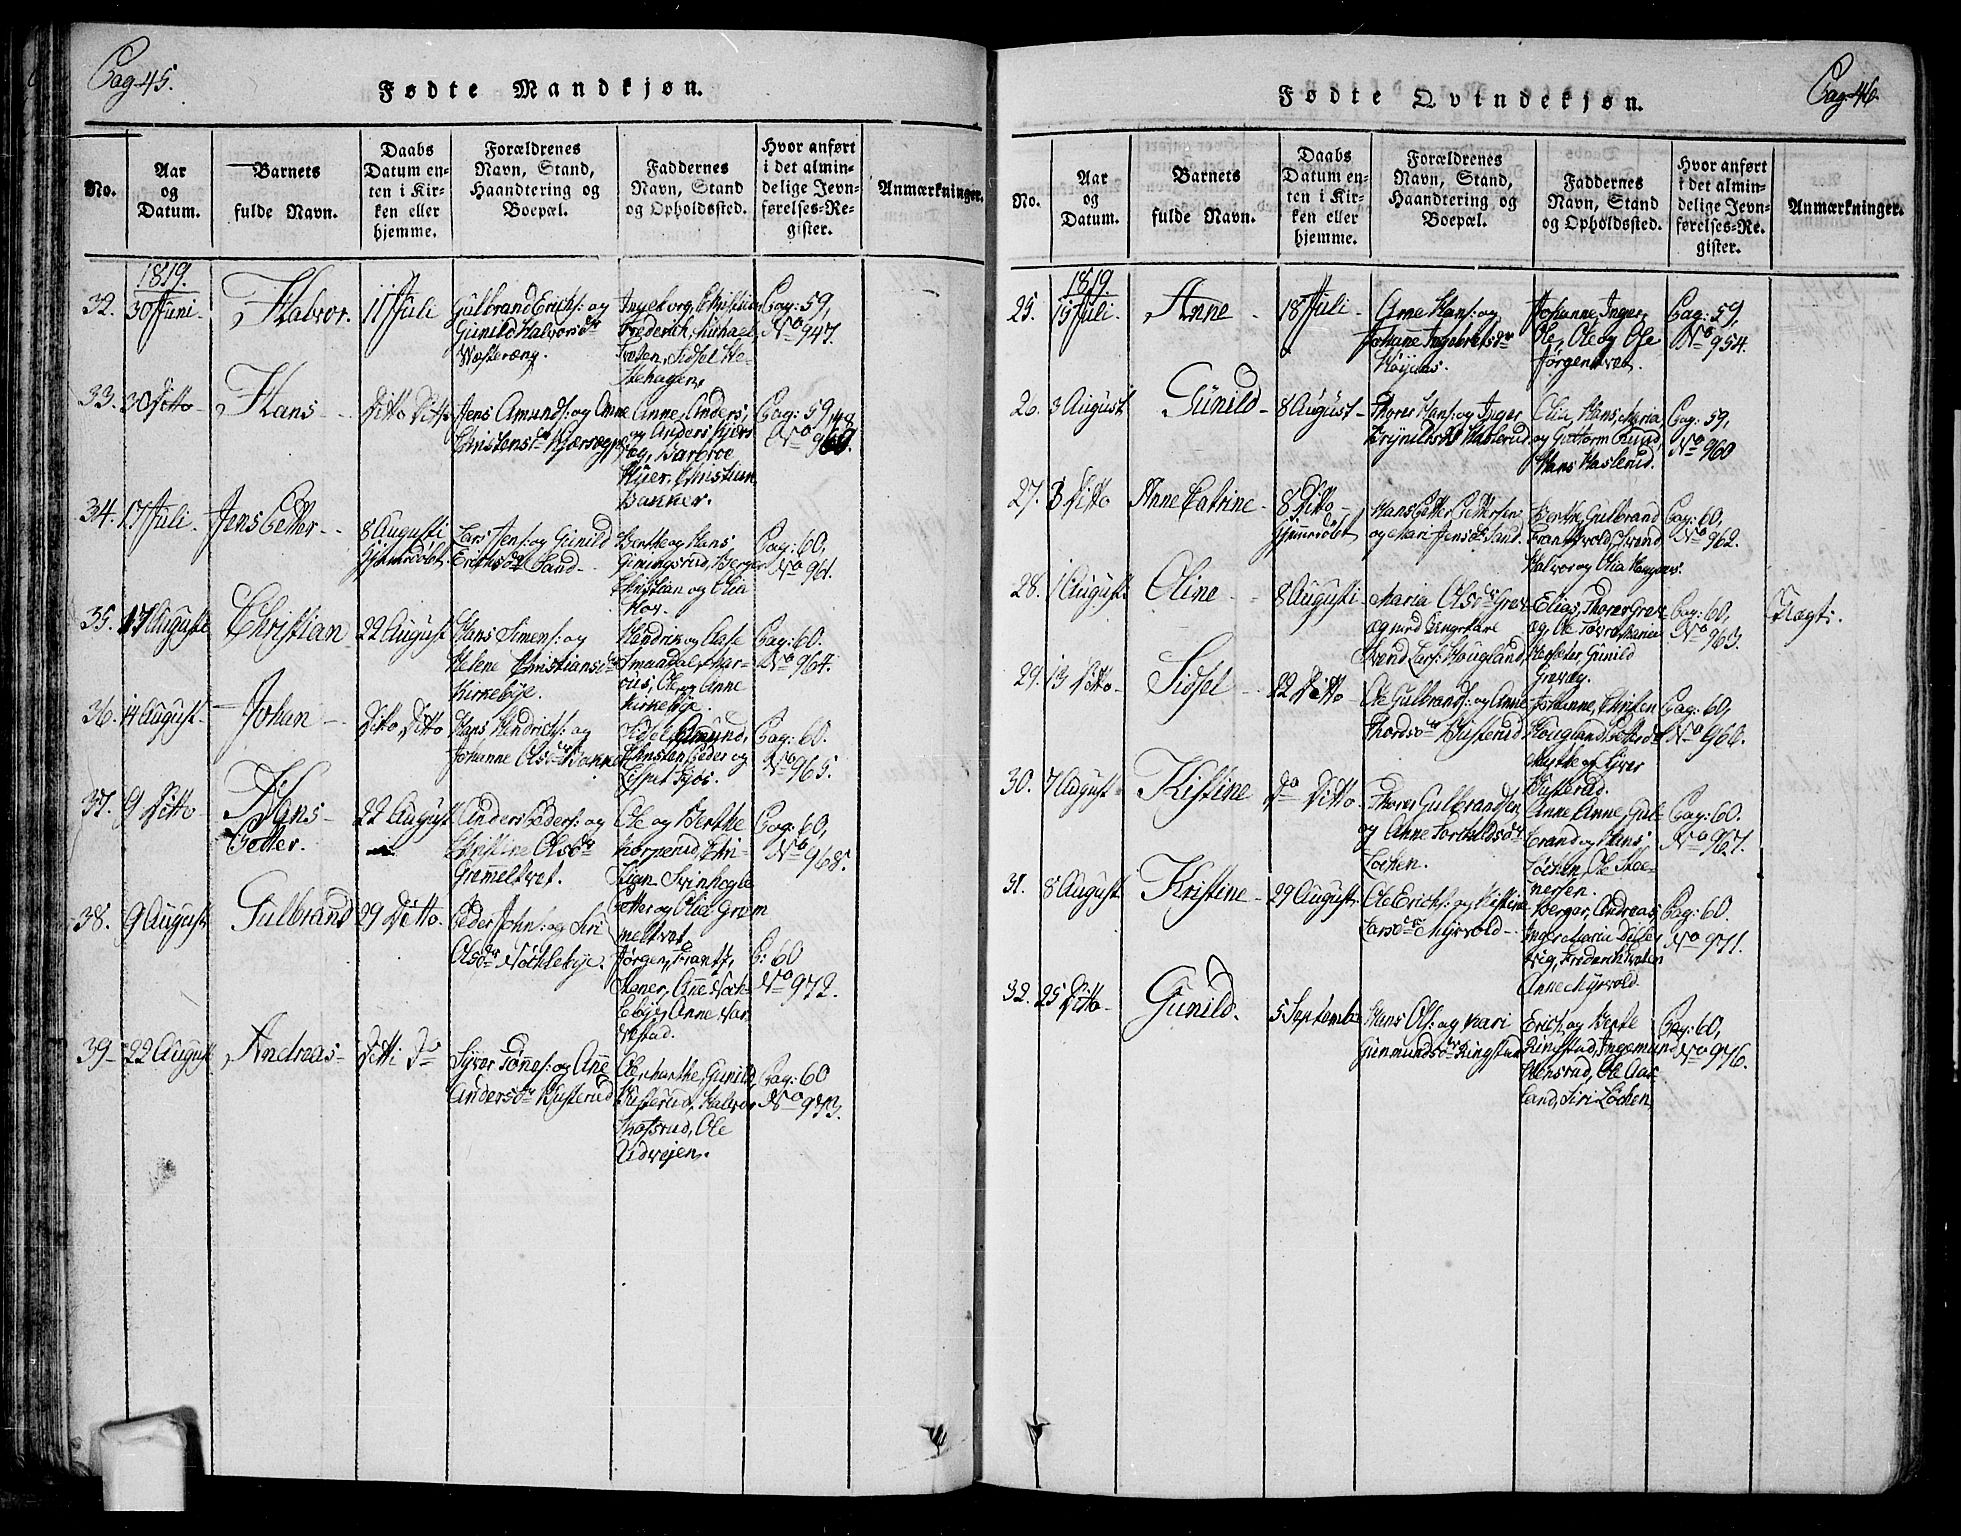 Pag 45.
Fødte Mandkjøn.
No.
Aar
og
Datum.
Barnets
fulde Navn.
Daabs
Datum en-
ten i Kir-
ken eller
hjemme.
Forældrenes
Navn, Stand,
Haandtering og
Boepæl.
Faddernes
Navn, Stand
og Opholdssted.
Hvor anført
i det almin-
delige Jevn-
førelses-Re-
gister.
Anmærkninger.
1819.
32. 30 Juni
Halvor.
11 Juli
Gulbrand Erichs: og
Gunild Halvorsdr
Westeræng.
Ingeborg, Christian
Frederich, Michael
Sidsel
Pag: 59,
No 947.
33. 30 Ditto
Hans
Ditto Ditto
Jens Amunds: og Anne
Christensdr
Anne, Anders,
og Anders
Christian
Bakker.
Pag: 59,
34. 17 Juli
Jens Petter
8 Augusti
Hjemmedöbt
Lars Jens: og Gunild
Erichsdr Sand
Berthe og Hans
Gimingsrud, Berger
Christian og Olia
Pag: 60,
No 961.
35. 17 August
Christian
22 August
Hans Simens: og
Helene Christiansdr
Kirkebye.
Hendrik og Aase
Smaadal, Mar-
Ole og Anne
Kirkebye.
Pag: 60.
No 964.
36. 14 August
Johan
Ditto Ditto
Hans Hendrichs: og
Johanne Olsdr
Sidsel, Amund,
Christen, Peder og
Pag: 60.
No 965.
37. 9 Ditto
Hans
Petter.
22 August
Anders Peders: og
Christine Olsdr
Grømeltvet.
Ole og Berthe
Korperud, Chri-
stian Svinhogle
Petter og Olia Gröm
meltvet
Pag: 60,
No 968.
38. 9 August
Gulbrand
29 Ditto.
Peder Johns: og Siri
Olsdr Nöchlebye.
Jörgen, Frantz,
Stener, Anne Noch-
lebye, Anne Var-
Pag: 60
No 972.
39 22 August
Andreas
Ditti Do
Syver Tönes: og Ane
Andersdr Husterud
Ole, Marthe, Gunild,
Husterud, Halvor
Ole
Udvejen.
Pag: 60
No 973.
Pag 46.
Fødte Qvindekjøn.
No.
Aar
og
Datum.
Barnets
fulde Navn.
Daabs
Datum en-
ten i Kir-
ken eller
hjemme.
Forældrenes
Navn, Stand,
Haandtering og
Boepæl.
Faddernes
Navn, Stand
og Opholdssted.
Hvor anført
i det almin-
delige Jevn-
førelses-Re-
gister.
Anmærkninger.
1819.
25. 15 Juli.
Anne
18 Juli
Arne Hans: og
Johane Ingebretsdr
Höyaas.
Johanne, Inger,
Ole, Ole og Ole
Jörgentvet.
Pag: 59,
No 954.
26. 3 August
Gunild
8 August
Thorer Hans: og Inger
Brynildsdr Haslerud
Olia, Hans, Maria,
og Guttorm Rund,
Hans Haslerud.
Pag: 59,
No 960
27. 3 Ditto
Anne Catrine
8 Ditto
Hjemmedöbt
Hans Petter Pettersen
og Mari Jensdr Sand.
Berthe, Gulbrand
Frantzvold, Svend
Halvor og Olia
Pag: 60,
No 962.
28. 1 August
Oline
8 Augusti
Maria Olsdr Grev-
æg med Ungekarl
Svend Lars: Hougland,
Elias, Thorer Grev-
æg, Ole
Gunild
Grevæg.
Pag: 60,
No 963.
Uægt:
29. 13 Ditto
Sidsel
22 Ditto
Ole Gulbrands: og Anne
Thordsdr Husterud
Johanne, Christen
Hougland
Husterud.
Pag: 60,
No 966.
30. 7 August
Kistine
Do Ditto.
Thorer Gulbrandsen,
og Anne Torkildsdr
Lochen.
Anne, Anne, Gul-
brand og Hans,
Löchen, Ole Ste-
nersen.
Pag: 60.
No 967.
31. 8 August
Kristine
29 August
Ole Erichs: og Kistine
Larsdr Myrvold
Berger, Andreas
Inger Maria
Anne Myrvold.
Pag: 60.
No 971.
32. 25 Ditto
Gunild.
5 Septembr
Hans Ols: og Kari
Gunmundsdr Ringstad
Erich og Berte
Ringstad, Ingemund
Ole Aas-
land, Siri Löchen
Pag: 60,
No 976.